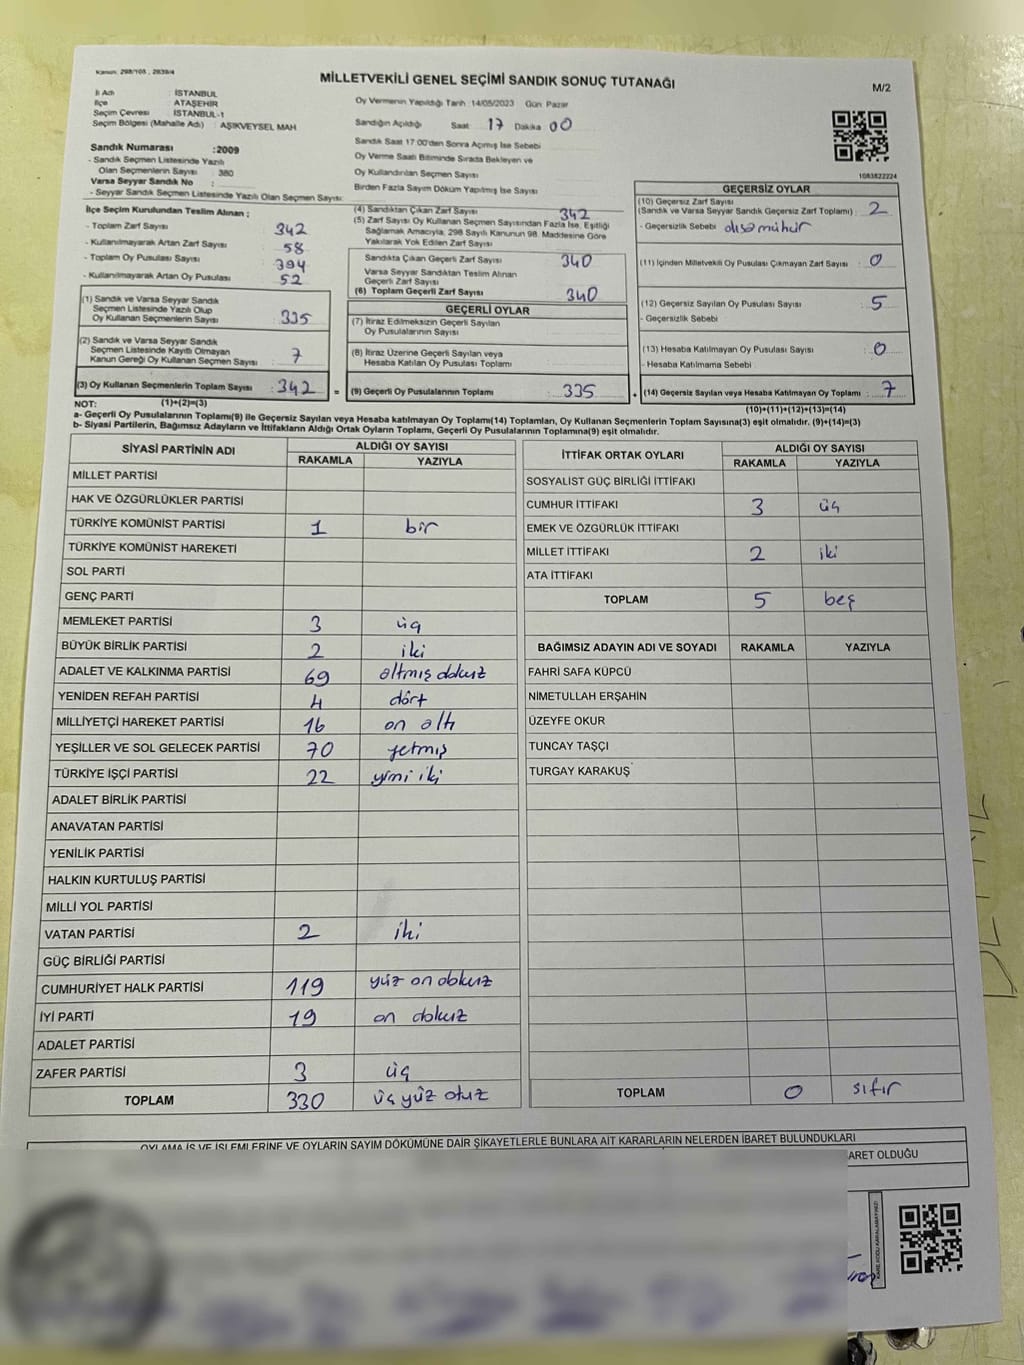 Kanun: 298/105 , 2839/4
MİLLETVEKİLİ GENEL SEÇİMİ SANDIK SONUÇ TUTANAĞI
M/2
İl Adı : İSTANBUL
İlçe : ATAŞEHİR
Seçim Çevresi : İSTANBUL-1
Seçim Bölgesi (Mahalle Adı) : AŞIKVEYSEL MAH
Oy Vermenin Yapıldığı Tarih :14/05/2023 Gün Pazar
Sandığın Açıldığı Saat: 17 Dakika 00
Sandık Saat 17:00'den Sonra Açımış İse Sebebi
Oy Verme Saati Bitiminde Sırada Bekleyen ve
Oy Kullandırılan Seçmen Sayısı
Birden Fazla Sayım Döküm Yapılmış İse Sayısı
1083822224
Sandık Numarası :2009
- Sandık Seçmen Listesinde Yazılı
Olan Seçmenlerin Sayısı : 380
Varsa Seyyar Sandık No :
- Seyyar Sandık Seçmen Listesinde Yazılı Olan Seçmen Sayısı:
İlçe Seçim Kurulundan Teslim Alınan ;
- Toplam Zarf Sayısı 342
- Kullanılmayarak Artan Zarf Sayısı 58
- Toplam Oy Pusulası Sayısı 394
- Kullanılmayarak Artan Oy Pusulası 52
(1) Sandık ve Varsa Seyyar Sandık
Seçmen Listesinde Yazılı Olup
Oy Kullanan Seçmenlerin Sayısı : 335
(2) Sandık ve Varsa Seyyar Sandık
Seçmen Listesinde Kayıtlı Olmayan
Kanun Gereği Oy Kullanan Seçmen Sayısı : 7
(3) Oy Kullanan Seçmenlerin Toplam Sayısı : 342 =
(4) Sandıktan Çıkan Zarf Sayısı 342
(5) Zarf Sayısı Oy Kullanan Seçmen Sayısından Fazla İse, Eşitliği
Sağlamak Amacıyla, 298 Sayılı Kanunun 98. Maddesine Göre
Yakılarak Yok Edilen Zarf Sayısı
Sandıkta Çıkan Geçerli Zarf Sayısı 340
Varsa Seyyar Sandıktan Teslim Alınan
Geçerli Zarf Sayısı
(6) Toplam Geçerli Zarf Sayısı 340
GEÇERLİ OYLAR
(7) İtiraz Edilmeksizin Geçerli Sayılan
Oy Pusulalarının Sayısı
(8) İtiraz Üzerine Geçerli Sayılan veya
Hesaba Katılan Oy Pusulası Toplamı
(9) Geçerli Oy Pusulalarının Toplamı : 335 +
GEÇERSİZ OYLAR
(10) Geçersiz Zarf Sayısı
(Sandık ve Varsa Seyyar Sandık Geçersiz Zarf Toplamı) : 2
- Geçersizlik Sebebi dışa mühür
(11) İçinden Milletvekili Oy Pusulası Çıkmayan Zarf Sayısı : 0
(12) Geçersiz Sayılan Oy Pusulası Sayısı : 5
- Geçersizlik Sebebi
(13) Hesaba Katılmayan Oy Pusulası Sayısı : 0
- Hesaba Katılmama Sebebi
(14) Geçersiz Sayılan veya Hesaba Katılmayan Oy Toplamı : 7
NOT: (1)+(2)=(3)
(10)+(11)+(12)+(13)=(14)
a- Geçerli Oy Pusulalarının Toplamı(9) ile Geçersiz Sayılan veya Hesaba katılmayan Oy Toplamı(14) Toplamları, Oy Kullanan Seçmenlerin Toplam Sayısına(3) eşit olmalıdır. (9)+(14)=(3)
b- Siyasi Partilerin, Bağımsız Adayların ve İttifakların Aldığı Ortak Oyların Toplamı, Geçerli Oy Pusulalarının Toplamına(9) eşit olmalıdır.
SİYASİ PARTİNİN ADI ALDIĞI OY SAYISI
RAKAMLA YAZIYLA
MİLLET PARTİSİ
HAK VE ÖZGÜRLÜKLER PARTİSİ
TÜRKİYE KOMÜNİST PARTİSİ 1 bir
TÜRKİYE KOMÜNİST HAREKETİ
SOL PARTİ
GENÇ PARTİ
MEMLEKET PARTİSİ 3 üç
BÜYÜK BİRLİK PARTİSİ 2 iki
ADALET VE KALKINMA PARTİSİ 69 altmış dokuz
YENİDEN REFAH PARTİSİ 4 dört
MİLLİYETÇİ HAREKET PARTİSİ 16 on altı
YEŞİLLER VE SOL GELECEK PARTİSİ 70 yetmiş
TÜRKİYE İŞÇİ PARTİSİ 22 yimi iki
ADALET BİRLİK PARTİSİ
ANAVATAN PARTİSİ
YENİLİK PARTİSİ
HALKIN KURTULUŞ PARTİSİ
MİLLİ YOL PARTİSİ
VATAN PARTİSİ 2 iki
GÜÇ BİRLİĞİ PARTİSİ
CUMHURİYET HALK PARTİSİ 119 yüz on dokuz
İYİ PARTİ 19 on dokuz
ADALET PARTİSİ
ZAFER PARTİSİ 3 üç
TOPLAM 330 üç yüz otuz
İTTİFAK ORTAK OYLARI ALDIĞI OY SAYISI
RAKAMLA YAZIYLA
SOSYALİST GÜÇ BİRLİĞİ İTTİFAKI
CUMHUR İTTİFAKI 3 üç
EMEK VE ÖZGÜRLÜK İTTİFAKI
MİLLET İTTİFAKI 2 iki
ATA İTTİFAKI
TOPLAM 5 beş
BAĞIMSIZ ADAYIN ADI VE SOYADI RAKAMLA YAZIYLA
FAHRİ SAFA KÜPCÜ
NİMETULLAH ERŞAHİN
ÜZEYFE OKUR
TUNCAY TAŞÇI
TURGAY KARAKUŞ
TOPLAM 0 sıfır
OYLAMA İŞ VE İŞLEMLERİNE VE OYLARIN SAYIM DÖKÜMÜNE DAİR ŞİKAYETLERLE BUNLARA AİT KARARLARIN NELERDEN İBARET BULUNDUKLARI
BARET OLDUĞU
KARE KODU KARALAMAYINIZ!